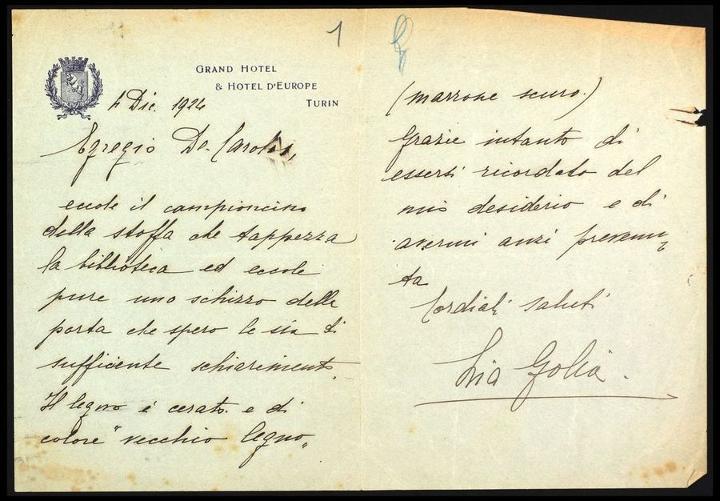 GRAND HOTEL
& HOTEL D'EUROPE
TURIN
4 Dic. 1924
Egregio De Carolis,
eccole il campioncino
della stoffa che tappezza
la biblioteca ed eccole
pure uno schizzo della
porta che spero le sia di
sufficente schiarimento.
Il legno è cerato e di
colore "vecchio legno"
1
(marrone scuro.)
Grazie intanto di
essersi ricordato del
mio desiderio e di
avermi anzi prevenu=
ta
Cordiali saluti
Lia Golia.